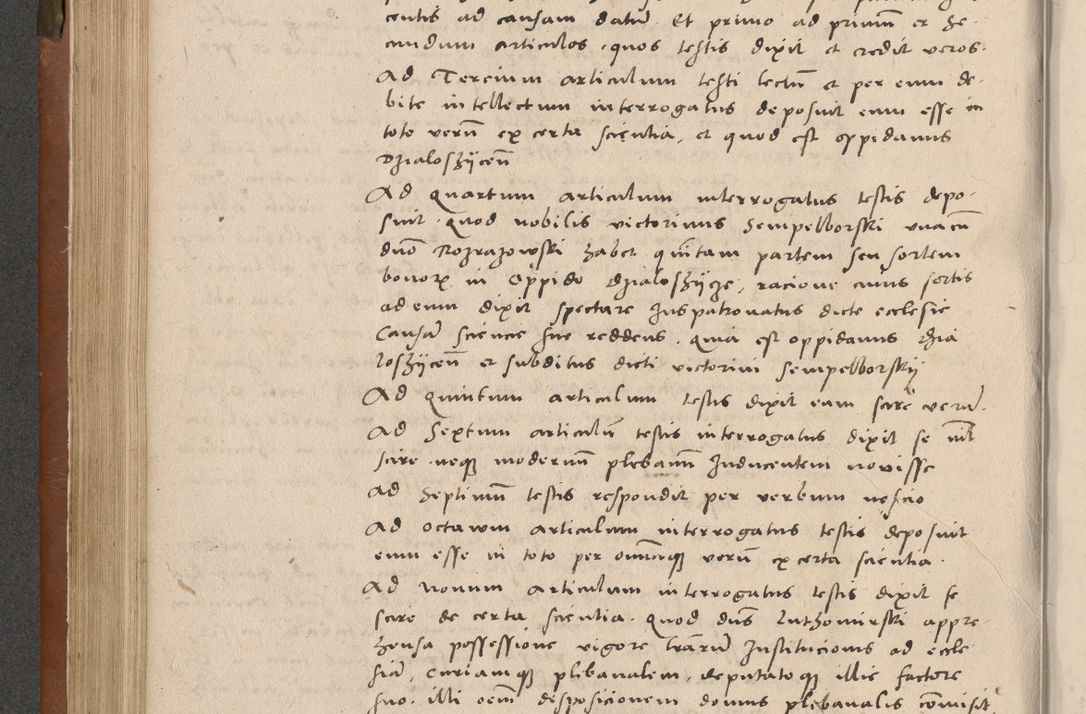 centis ad causam datum̄. Et primo ad primum̄ et Se-
cundum articulos . quos testis dixit et credit veros.
Ad Tercium articulum testi lectum̄ et per eum de-
bite intellectum interrogatus deposuit eum esse in
toto verum̄ ex certa scientia, et quod est oppidanus
Dzialoszijceñ
Ad quartum articulum interrogatus testis depo-
suit . quod nobilis victorinus Sempelborski vnacum̄
dno Rozrazowski habet quintam partem seu sortem
bonorum in Oppido dzialoszijcze, racione cuius sortis
ad eum dixit spectare Iuspatronatus dicte ecclesie
Causam̄ sciencie sue reddens . quia est oppidanus dzia
loszijceñ et subditus dicti victorini Sempelborskij
Ad quintum articulum testis dixit eum scire verum̄.
Ad Sextum articulum̄ testis interrogatus dixit se nil
scire neque modernum̄ plebanum̄ Inducentem novisse
Ad Septimum̄ testis respondit per verbum nescio
Ad octavum articulum interrogatus testis deposuit
eum esse in toto per omnēque verum̄ ex certa scientia .
Ad Nonum articulum interrogatus testis dixit se
scire de certa scientia . quod dn̄s Luthomirski appre-
hensa possessione vigore lr̄arum̄ Institucionis ad eccle-
siam̄, Curiamque plebanalem, deputatoque illic factore
suo . illi oem̄ disposicionem domus plebanalis com̄isit